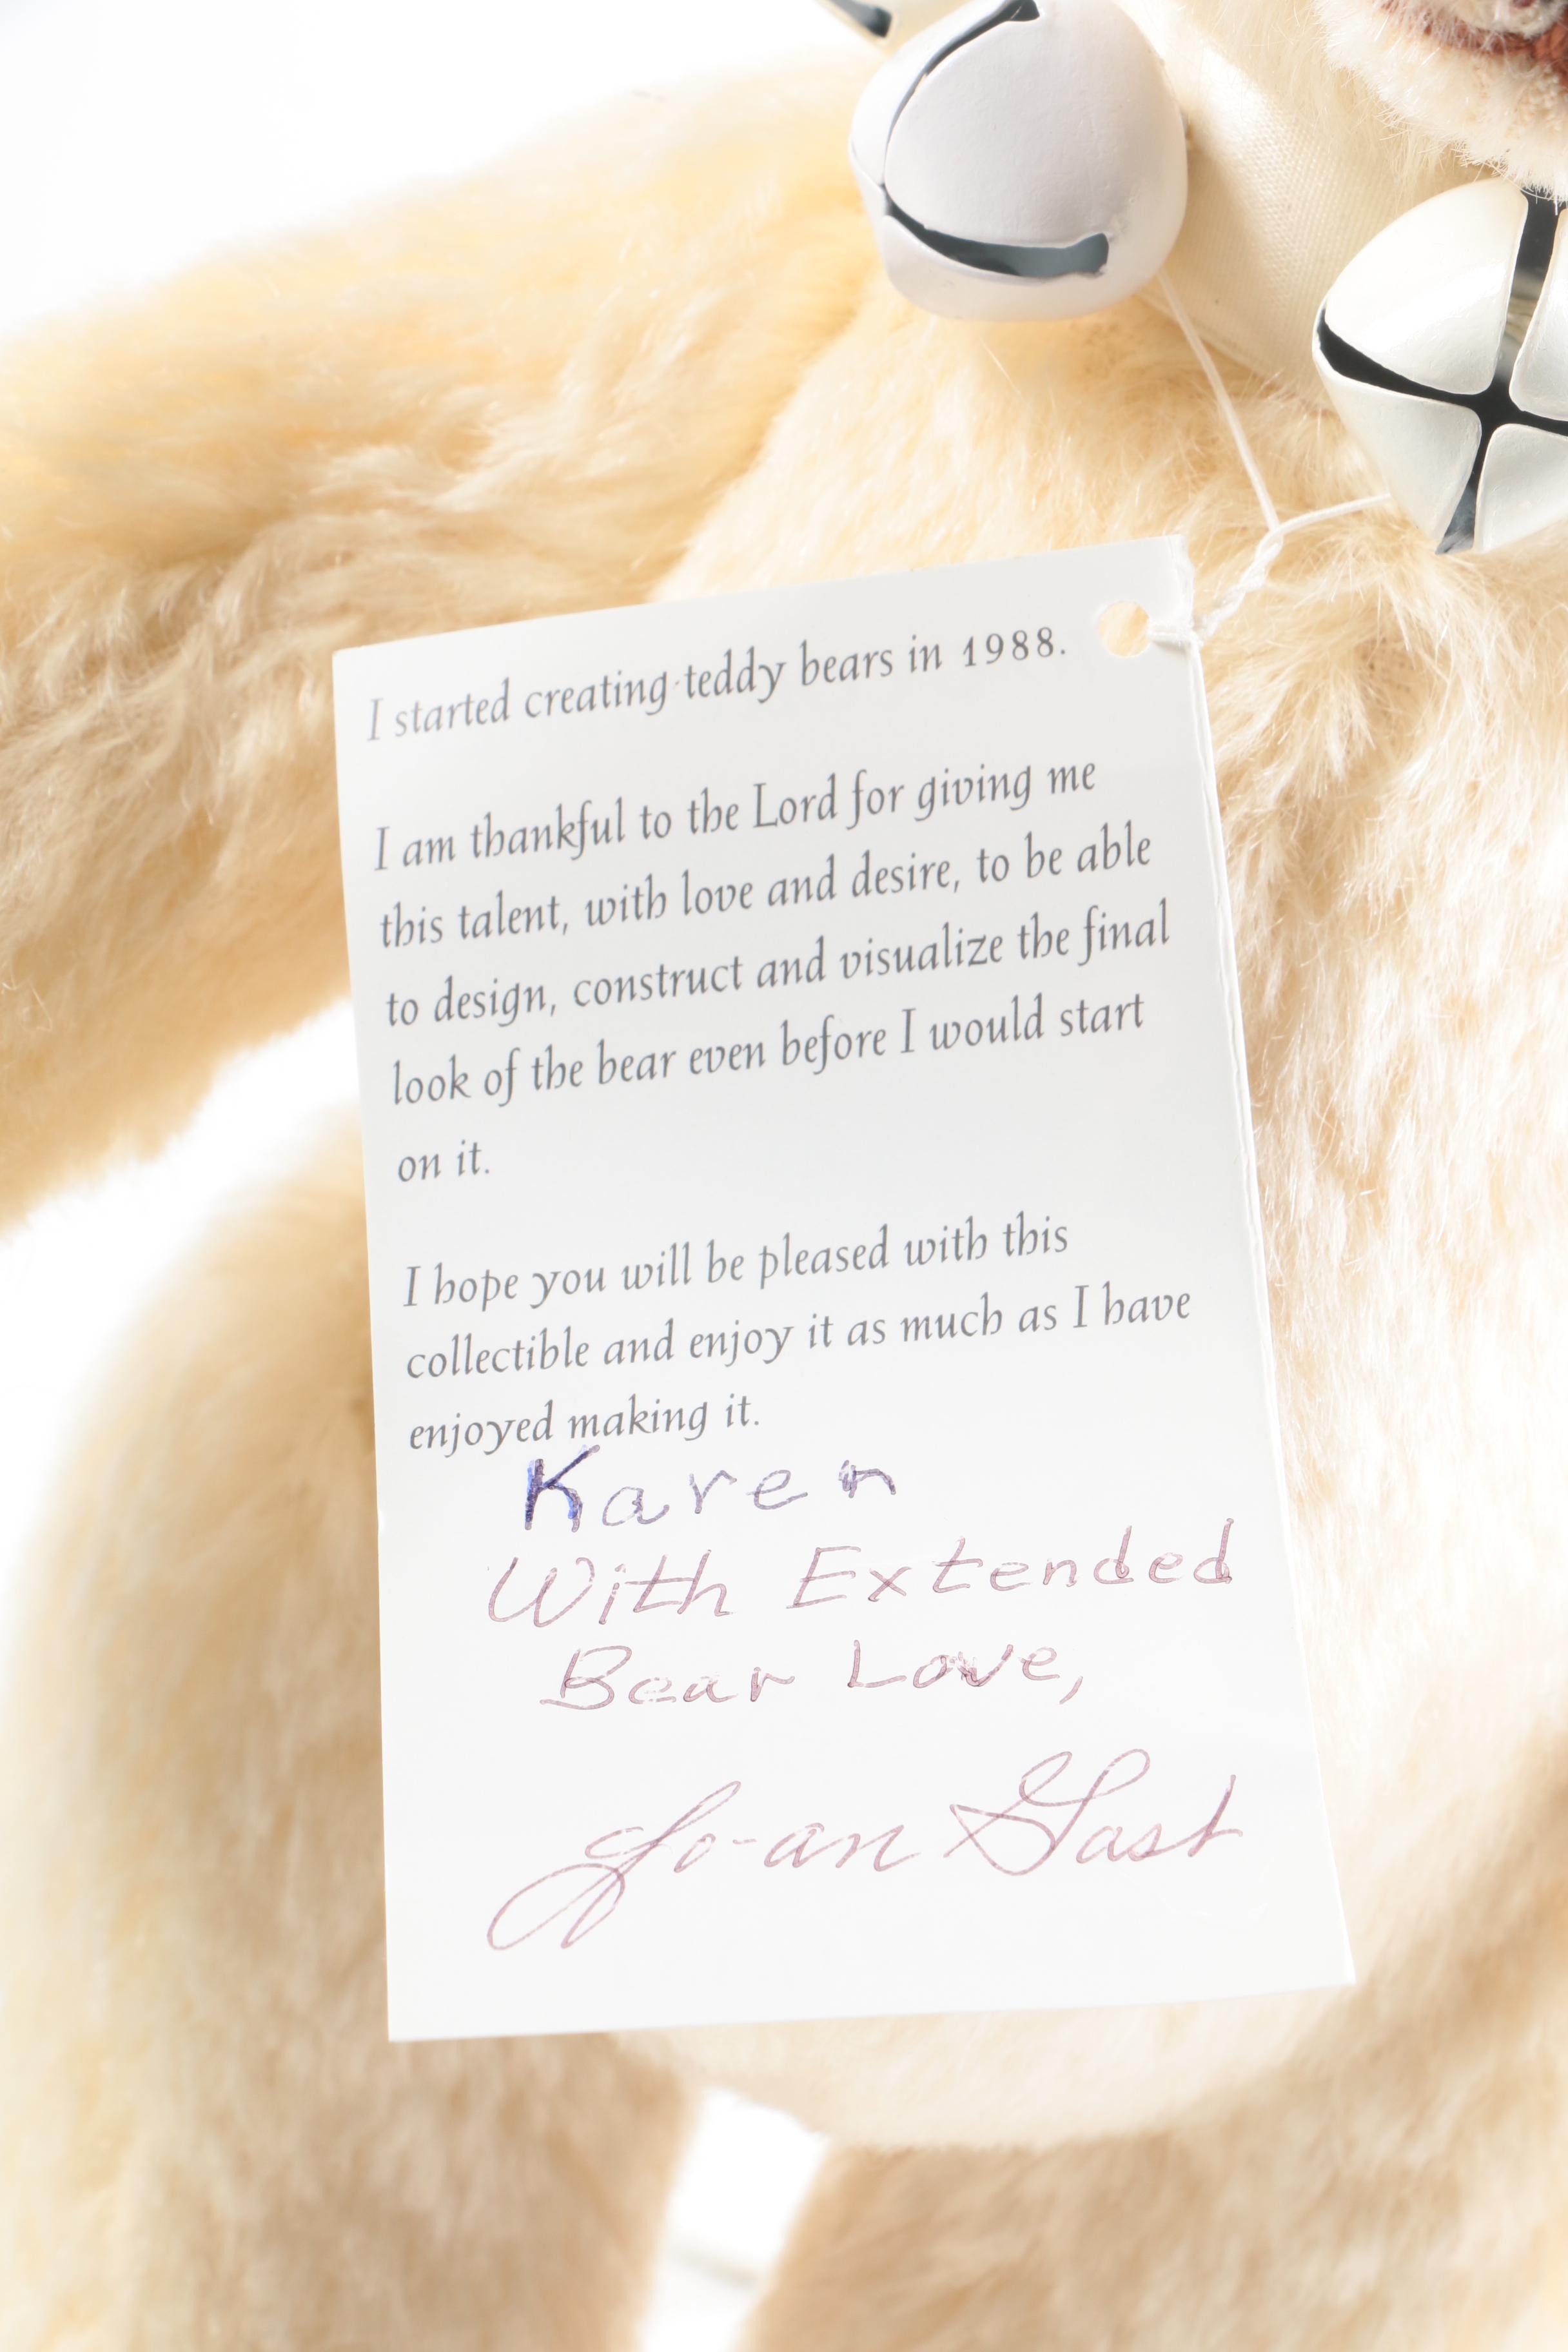 I started creating teddy bears in 1988.
I am thankful to the Lord for giving me
this talent, with love and desire, to be able
to design, construct and visualize the final
look of the bear even before I would start
on it.
I hope you will be pleased with this
collectible and enjoy it as much as I have
enjoyed making it.
Karen
With Extended
Bear Love,
Jo-an Gast